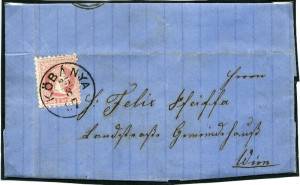 KÖBÁNYA
Herrn
Felix Pfeiffa
Landstrasse Gemeindehauß
Wien